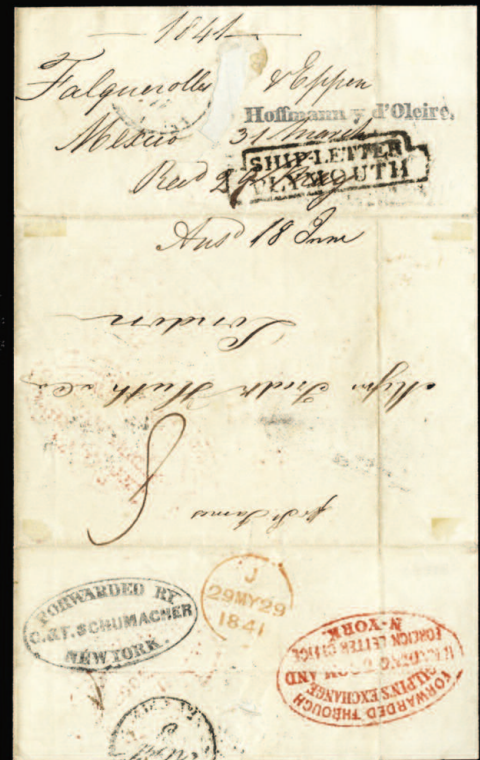 1841
Falquerolles & Eppen
Hoffmann y d'Oleire.
Mexico 31 March
SHIP-LETTER
PLYMOUTH
Recd 29 May
Ansd 18 June
London
Messrs Fredk Huth & Co
8
pr St James
J
29MY29
1841
FORWARDED BY
C.&T. SCHUMACHER
NEW YORK
FORWARDED THROUGH
GILPIN'S EXCHANGE
READING ROOM AND
FOREIGN LETTER OFFICE
N-YORK.